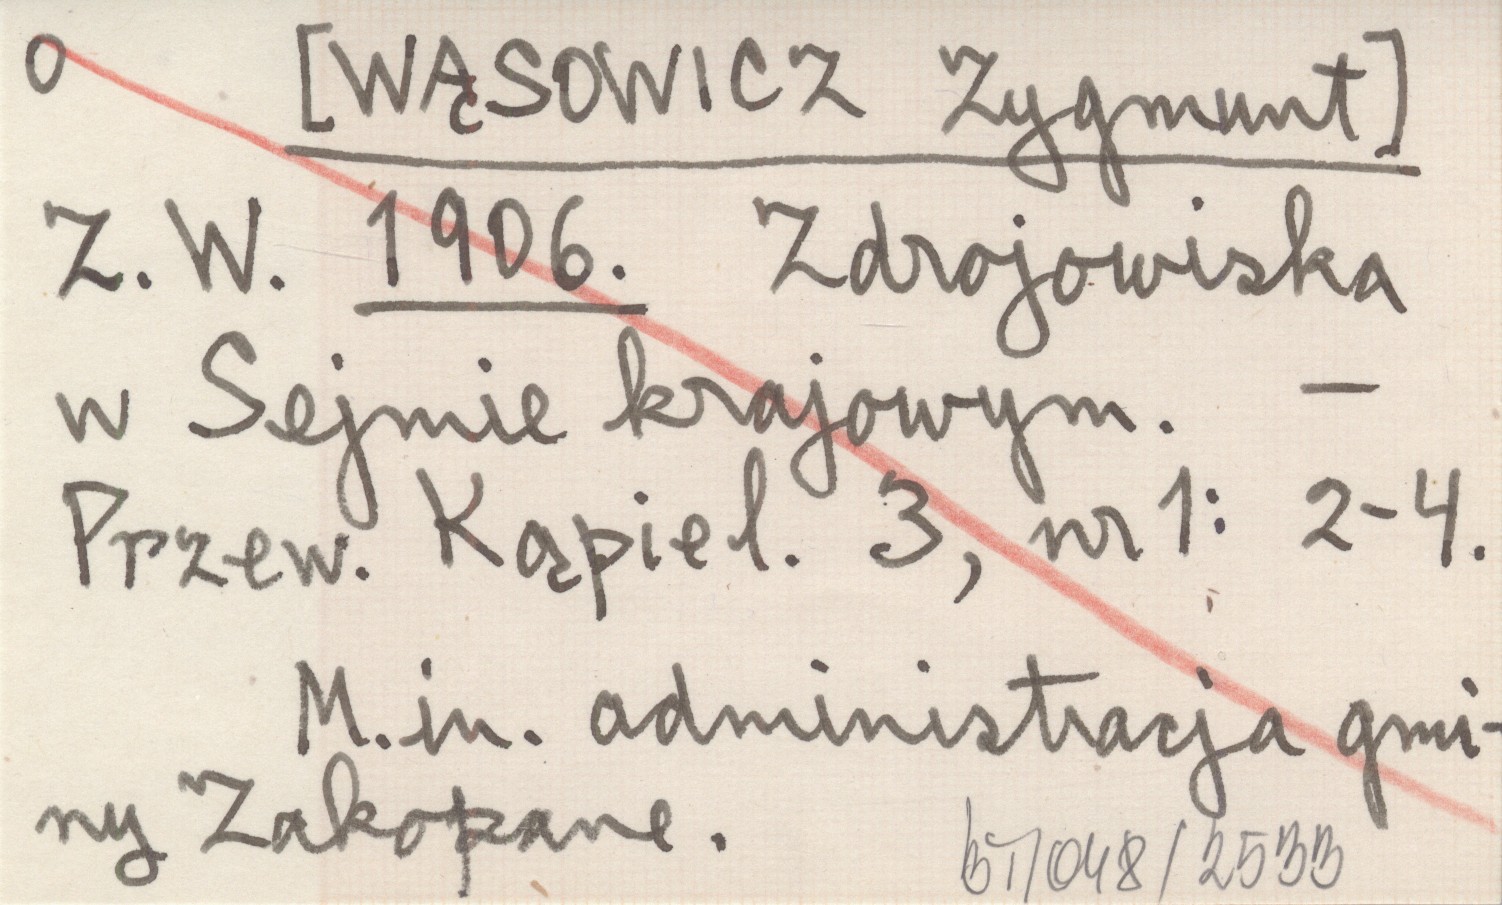 o [WĄSOWICZ Zygmunt]
Z. W. 1906. Zdrojowiska
w Sejmie krajowym. —
Przew. Kąpiel. 3, nr 1: 2-4.
M.in. administracja gmi-
ny Zakopane.
BT/048/2533